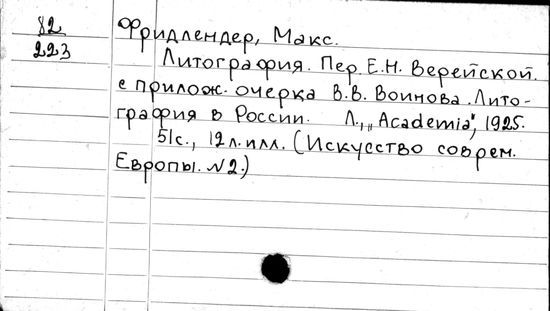 82
223
Фридлендер, Макс.
Литография. Пер. Е.Н. Верейской.
с прилож. очерка В.В. Воинова. Лито-
графия в России. Л., „Academia", 1925.
51с., 12 л. илл. (Искусство соврем.
Европы. №2.)